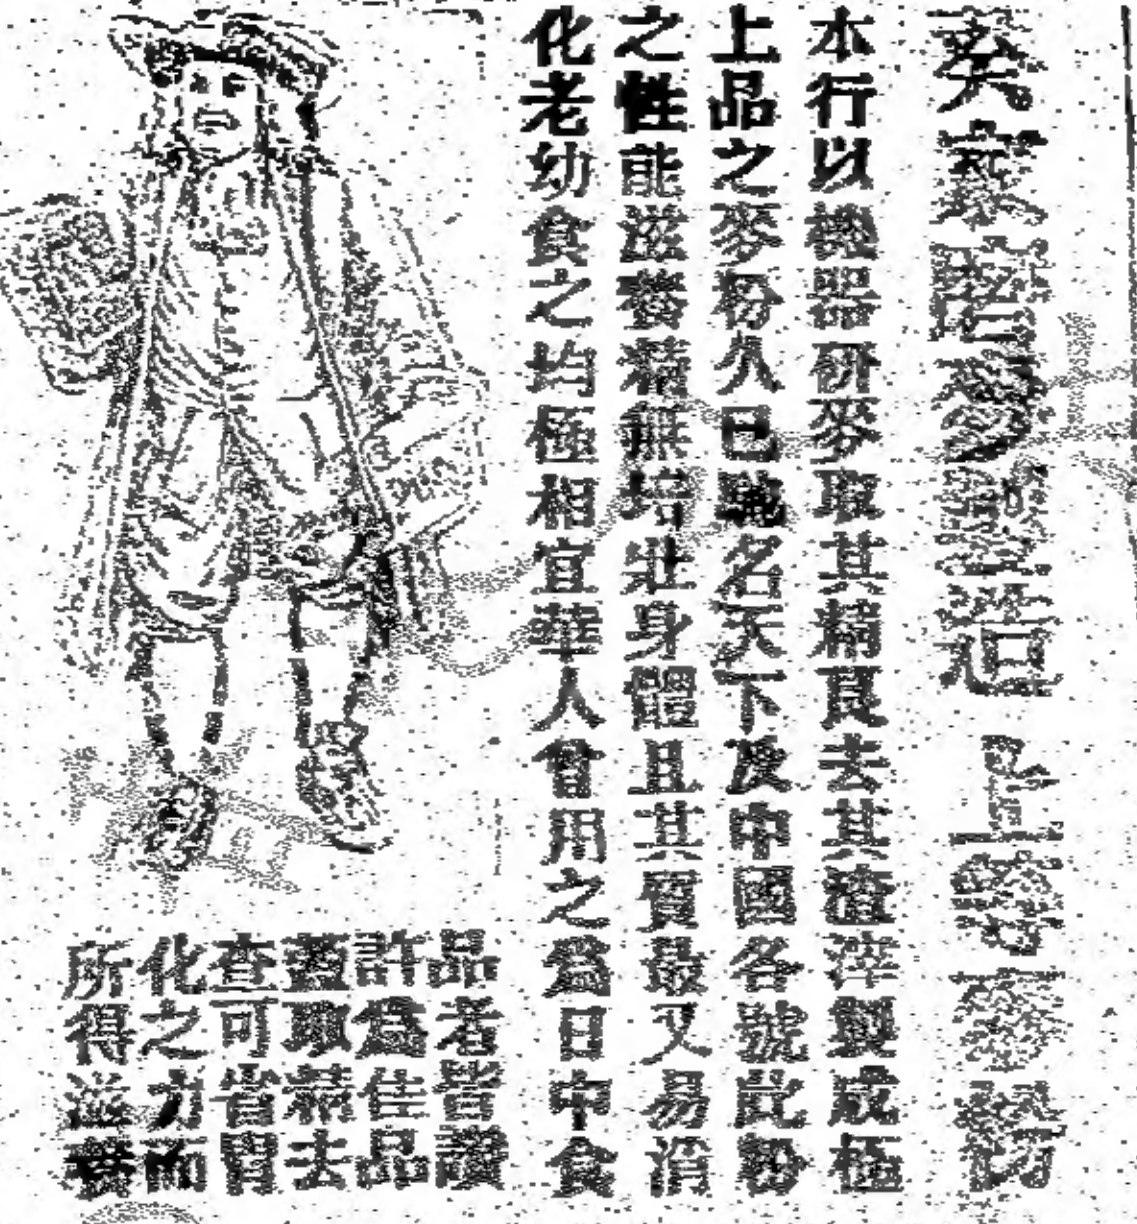 上等麥粉
本行以機器研麥取其精良去其渣滓製成極
上品之麥粉久已馳名天下及中國各號此粉
之性能滋養精無培壯身體且其質最又易消
化老幼食之均極相宜華人曾用之為日中食
品者皆讚
許為佳品
蓋取蒜去
查可省胃
化之力而
所得滋養